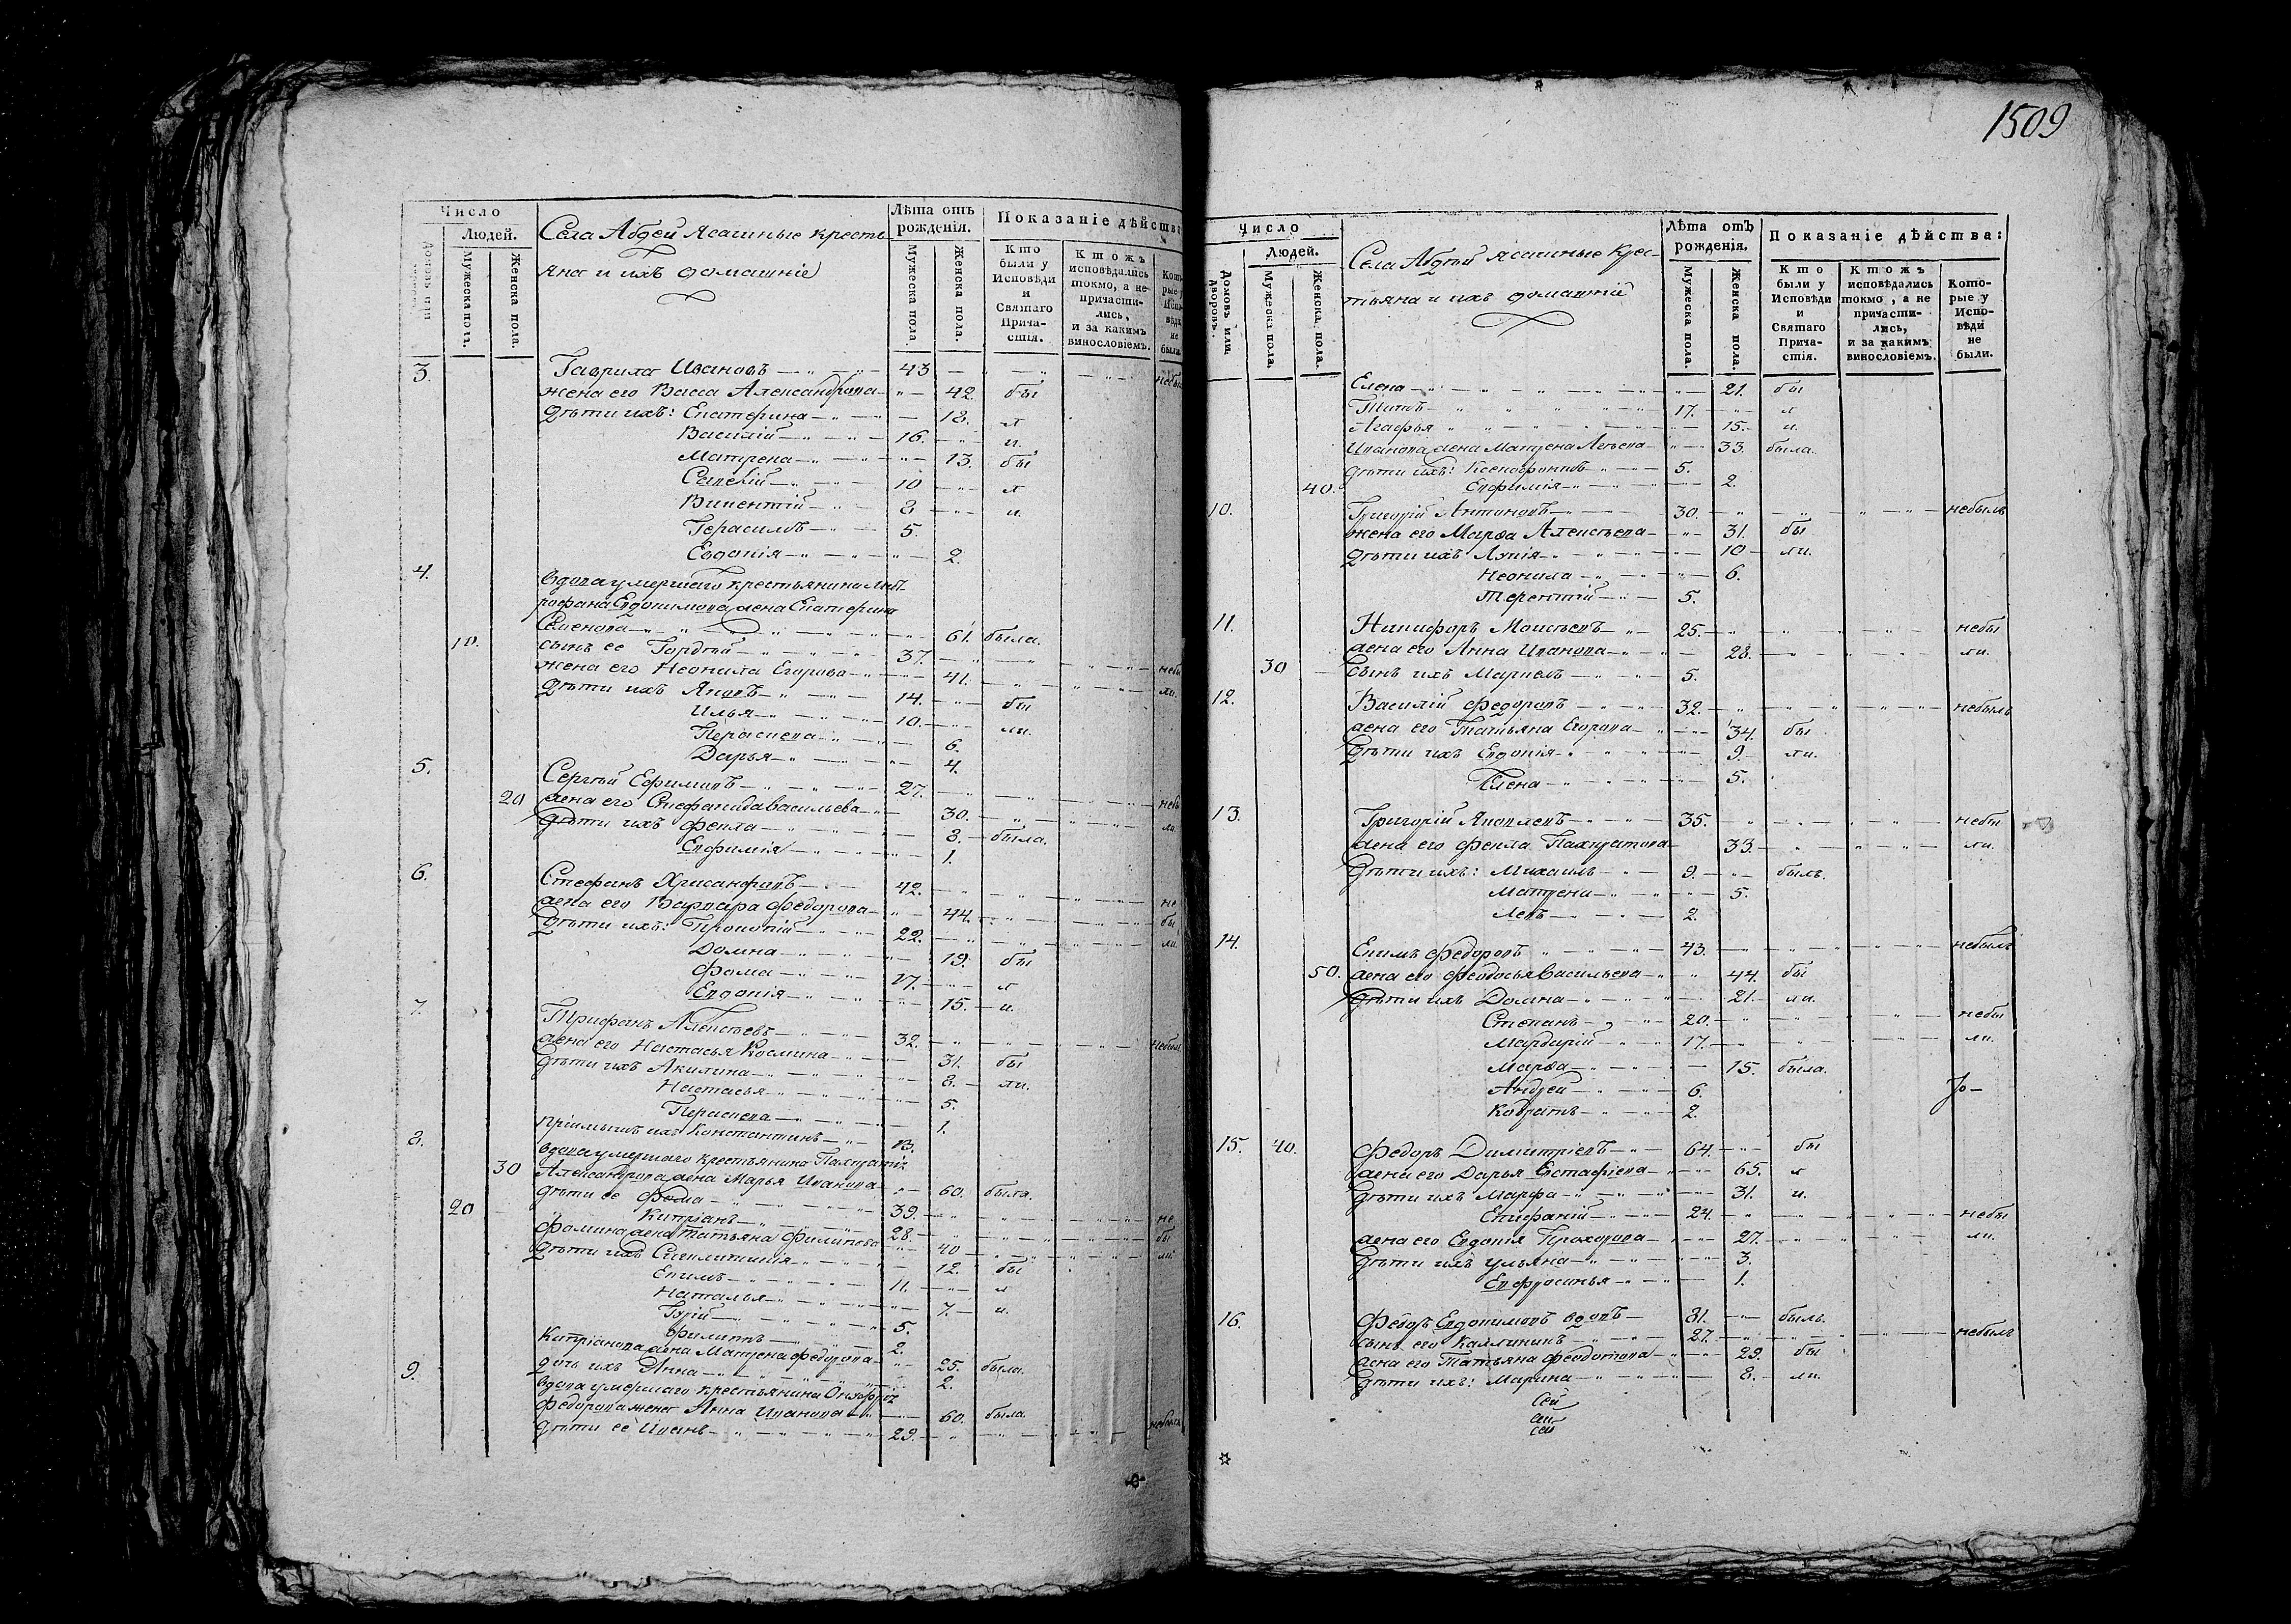 Число
Людей.
Мужеска пола.
Женска пола.
Села Абдеи Ясашные кресть
яна и ихъ домашніе
Лѣта отъ рожденія.
Мужеска пола.
Женска пола.
Показаніе дѣйства
Кто были у Исповѣди и Святаго Причастія.
Ктожъ исповѣдались токмо, а не причастились, и за какимъ винословіемъ.
3. Гаврила Ивановъ 43
жена его Васса Александрова 42. бы
дѣти ихъ: Екатерина 18. л
Василій 16. и.
Матрена 13. бы
10 л
Викентій 8 и.
Герасимъ 5.
Евдокія 2.
4. вдова умершаго крестьянина Мит-
рофана Евдокимова жена Екатерина
Семенова 61. была.
10. сынъ ее Гордѣй 37.
жена его Неонила Егорова 41.
дѣти ихъ Яковъ 14. бы
Илья 10. ли.
Параскева 6.
Дарья 4.
5. Сергѣй Ефимовъ 27.
20 жена его Стефанида Васильева 30.
дѣти ихъ Фекла 8. была.
Евфимія 1.
6. Стефанъ Хрисанфовъ 42. не
жена его Варвара Федорова 44. бы
дѣти ихъ: Прокопій 22. ли
Домна 19. бы
Фома 17. л
Евдокія 15. и.
7. Трифонъ Алексѣевъ 32.
жена его Настасья Космина 31. бы
дѣти ихъ Акилина 8. ли.
Настасья 5.
Параскева 1.
пріимышъ ихъ Константинъ 13.
8. вдова умершаго крестьянина
30 Александрова жена Марья Иванова 60. была.
дѣти ее Фома 39. не
20 Кипріанъ 28. бы
Фомина жена Татьяна Филипова 40 ли
дѣти ихъ 12. бы
Екимъ 11. л
Наталья 7. и.
Гурій 5.
Филиппъ 2.
Кипріанова жена Матрена Федорова 25. была.
дочь ихъ Анна 2.
9. вдова умершаго крестьянина
Федорова жена Анна Иванова 60. была.
дѣти ее Иванъ 29.
1509
Число
Домовъ или дворовъ.
Людей.
Мужеска пола.
Женска пола.
Села Абдѣй Ясашные крес-
тьяна и ихъ домашніе
Лѣта отъ рожденія.
Мужеска пола.
Женска пола.
Показаніе дѣйства:
Кто были у Исповѣди и Святаго Причастія.
Ктожъ исповѣдались токмо, а не причастились, и за какимъ винословіемъ.
Которые у Исповѣди не были.
Елена 21. бы
Титъ 17. л
Агафья 15. и.
Иванова жена Матрена 33. была.
дѣти ихъ: Ксенофонтъ 5.
40. Евфимія 2.
10. Григорій Антоновъ 30. небылъ
жена его Марѳа Алексѣева 31. бы
дѣти ихъ 10 ли.
Неонила 6.
Терентій 5.
11. Никифоръ Моисѣевъ 25. небы
жена его Анна Иванова 28. ли.
30 сынъ ихъ Маркелъ 5.
12. Василій Федоровъ 32. небылъ
жена его Татьяна Егорова 34. бы
дѣти ихъ Евдокія 9. ли.
Елена 5.
13. Григорій Яковлевъ 35. небы
жена его Фекла 33. ли.
дѣти ихъ: Михаилъ 9. былъ.
Матрена 5.
Левъ 2.
14. Екимъ Федоровъ 43. небылъ
50. жена его Феодосья Васильева 44. бы
дѣти ихъ Домна 21. ли.
Степанъ 20. небы
Мардарій 17. ли.
Марѳа 15. была.
Андрей 6.
Кодратъ 2.
15. 40. Федоръ Димитріевъ 64. бы
жена его Дарья Евстафіева 65. л
дѣти ихъ Марфа 31. и.
Епифаній 24. небы
жена его Евдокія Прохорова 27. ли.
дѣти ихъ Ульяна 3.
Евфросинья 1.
16. Федоръ Евдокимовъ вдовъ 81. былъ.
сынъ его Каллиникъ 27. небылъ
жена его Татьяна Феодотова 29. бы
дѣти ихъ: Марина 8. ли.